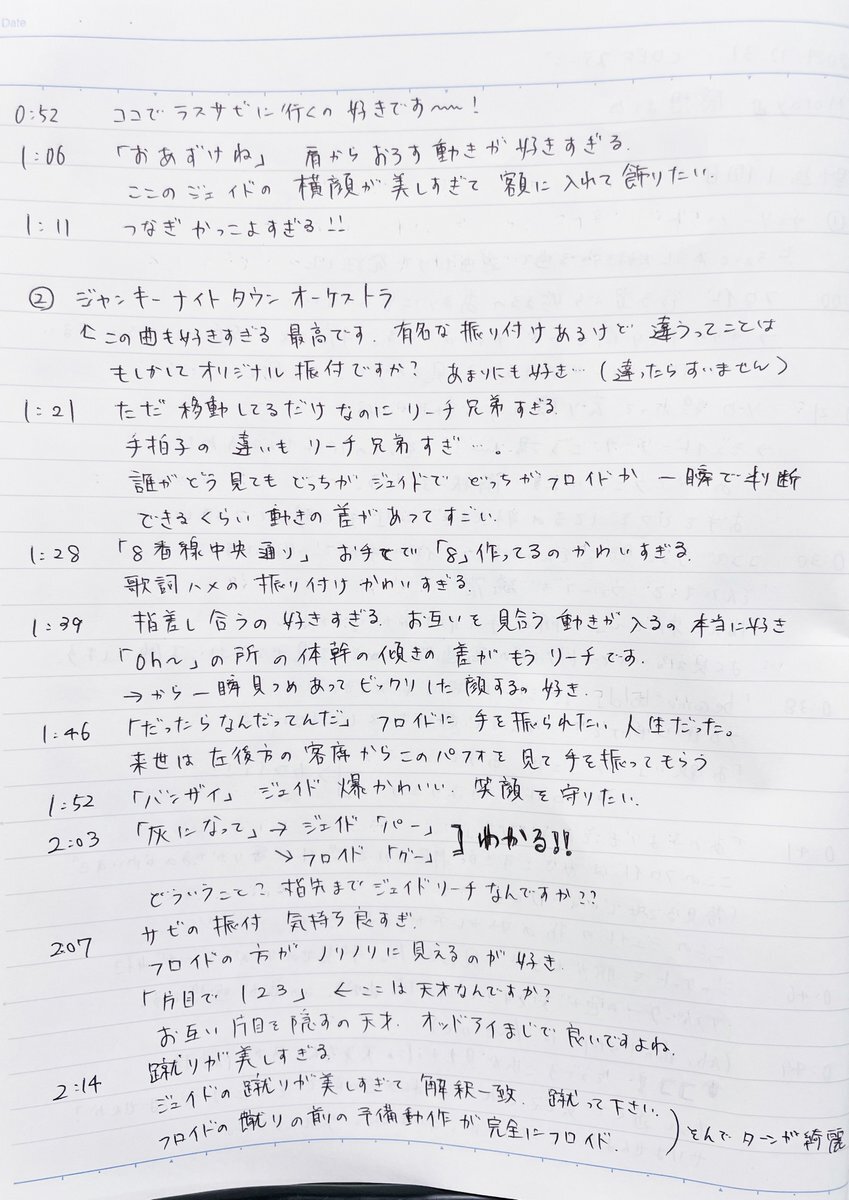 Date
0:52 ココでラスサビに行くの好きです〜〜!
1:06 「おあずけね」 肩からおろす動きが好きすぎる.
ここのジェイドの横顔が美しすぎて額に入れて飾りたい.
1:11 つなぎかっこよすぎる!!
② ジャンキーナイトタウンオーケストラ
↑この曲も好きすぎる 最高です. 有名な振り付けあるけど違うってことは
もしかしてオリジナル振付ですか? あまりにも好き…(違ったらすいません)
1:21 ただ移動してるだけなのにリーチ兄弟すぎる.
手拍子の違いもリーチ兄弟すぎ…。
誰がどう見てもどっちがジェイドでどっちがフロイドか一瞬で判断
できるくらい動きの差があってすごい.
1:28 「8番線中央通り」 お手てで「8」作ってるのかわいすぎる.
歌詞ハメの振り付けかわいすぎる.
1:39 指差し合うの好きすぎる. お互いを見合う動きが入るの本当に好き
「Oh〜」の所の体幹の傾きの差がもうリーチです.
→から一瞬見つめあってビックリした顔するの好き.
1:46 「だったらなんだってんだ」 フロイドに手を振られたい人生だった。
来世は左後方の客席からこのパフォを見て手を振ってもらう
1:52 「バンザイ」 ジェイド爆かわいい. 笑顔を守りたい.
2:03 「灰になって」→ ジェイド「パー」
↘ フロイド「グー」 】わかる!!
どういうこと? 指先までジェイドリーチなんですか??
サビの振付 気持ち良すぎ.
2:07 フロイドの方がノリノリに見えるのが好き.
「片目で123」 ←ここは天才なんですか?
お互い片目を隠すの天才. オッドアイまじで良いですよね.
2:14 蹴りが美しすぎる.
ジェイドの蹴りが美しすぎて解釈一致. 蹴って下さい.
フロイドの蹴りの前の予備動作が完全にフロイド. ) そんでターンが綺麗